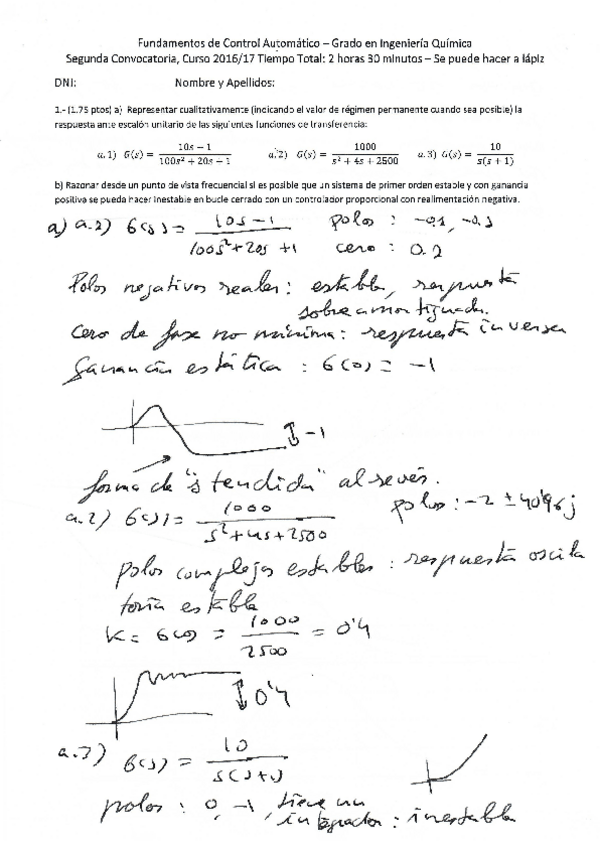 Fundamentos de Control Automático – Grado en Ingeniería Química
Segunda Convocatoria, Curso 2016/17 Tiempo Total: 2 horas 30 minutos – Se puede hacer a lápiz
DNI: Nombre y Apellidos:
1.- (1.75 ptos) a) Representar cualitativamente (indicando el valor de régimen permanente cuando sea posible) la
respuesta ante escalón unitario de las siguientes funciones de transferencia:
a.1) G(s) = (10s − 1)/(100s² + 20s − 1) a.2) G(s) = 1000/(s² + 4s + 2500) a.3) G(s) = 10/(s(s + 1))
b) Razonar desde un punto de vista frecuencial si es posible que un sistema de primer orden estable y con ganancia
positiva se pueda hacer inestable en bucle cerrado con un controlador proporcional con realimentación negativa.
a) a.2) G(s) = (10s−1)/(100s²+20s+1) polos : −0.1, −0.1
cero : 0.2
Polos negativos reales : estable, respuesta
sobreamortiguada.
Cero de fase no mínima : respuesta inversa
Ganancia estática : G(0) = −1
−1
forma de "s tendida" al revés.
a.2) G(s) = 1000/(s²+4s+2500) polos : −2 ± 40'96j
polos complejos estables : respuesta oscila
toria estable
K = G(0) = 1000/2500 = 0'4
0'4
a.3) G(s) = 10/(s(s+1))
polos : 0, −1, tiene un
integrador : inestable